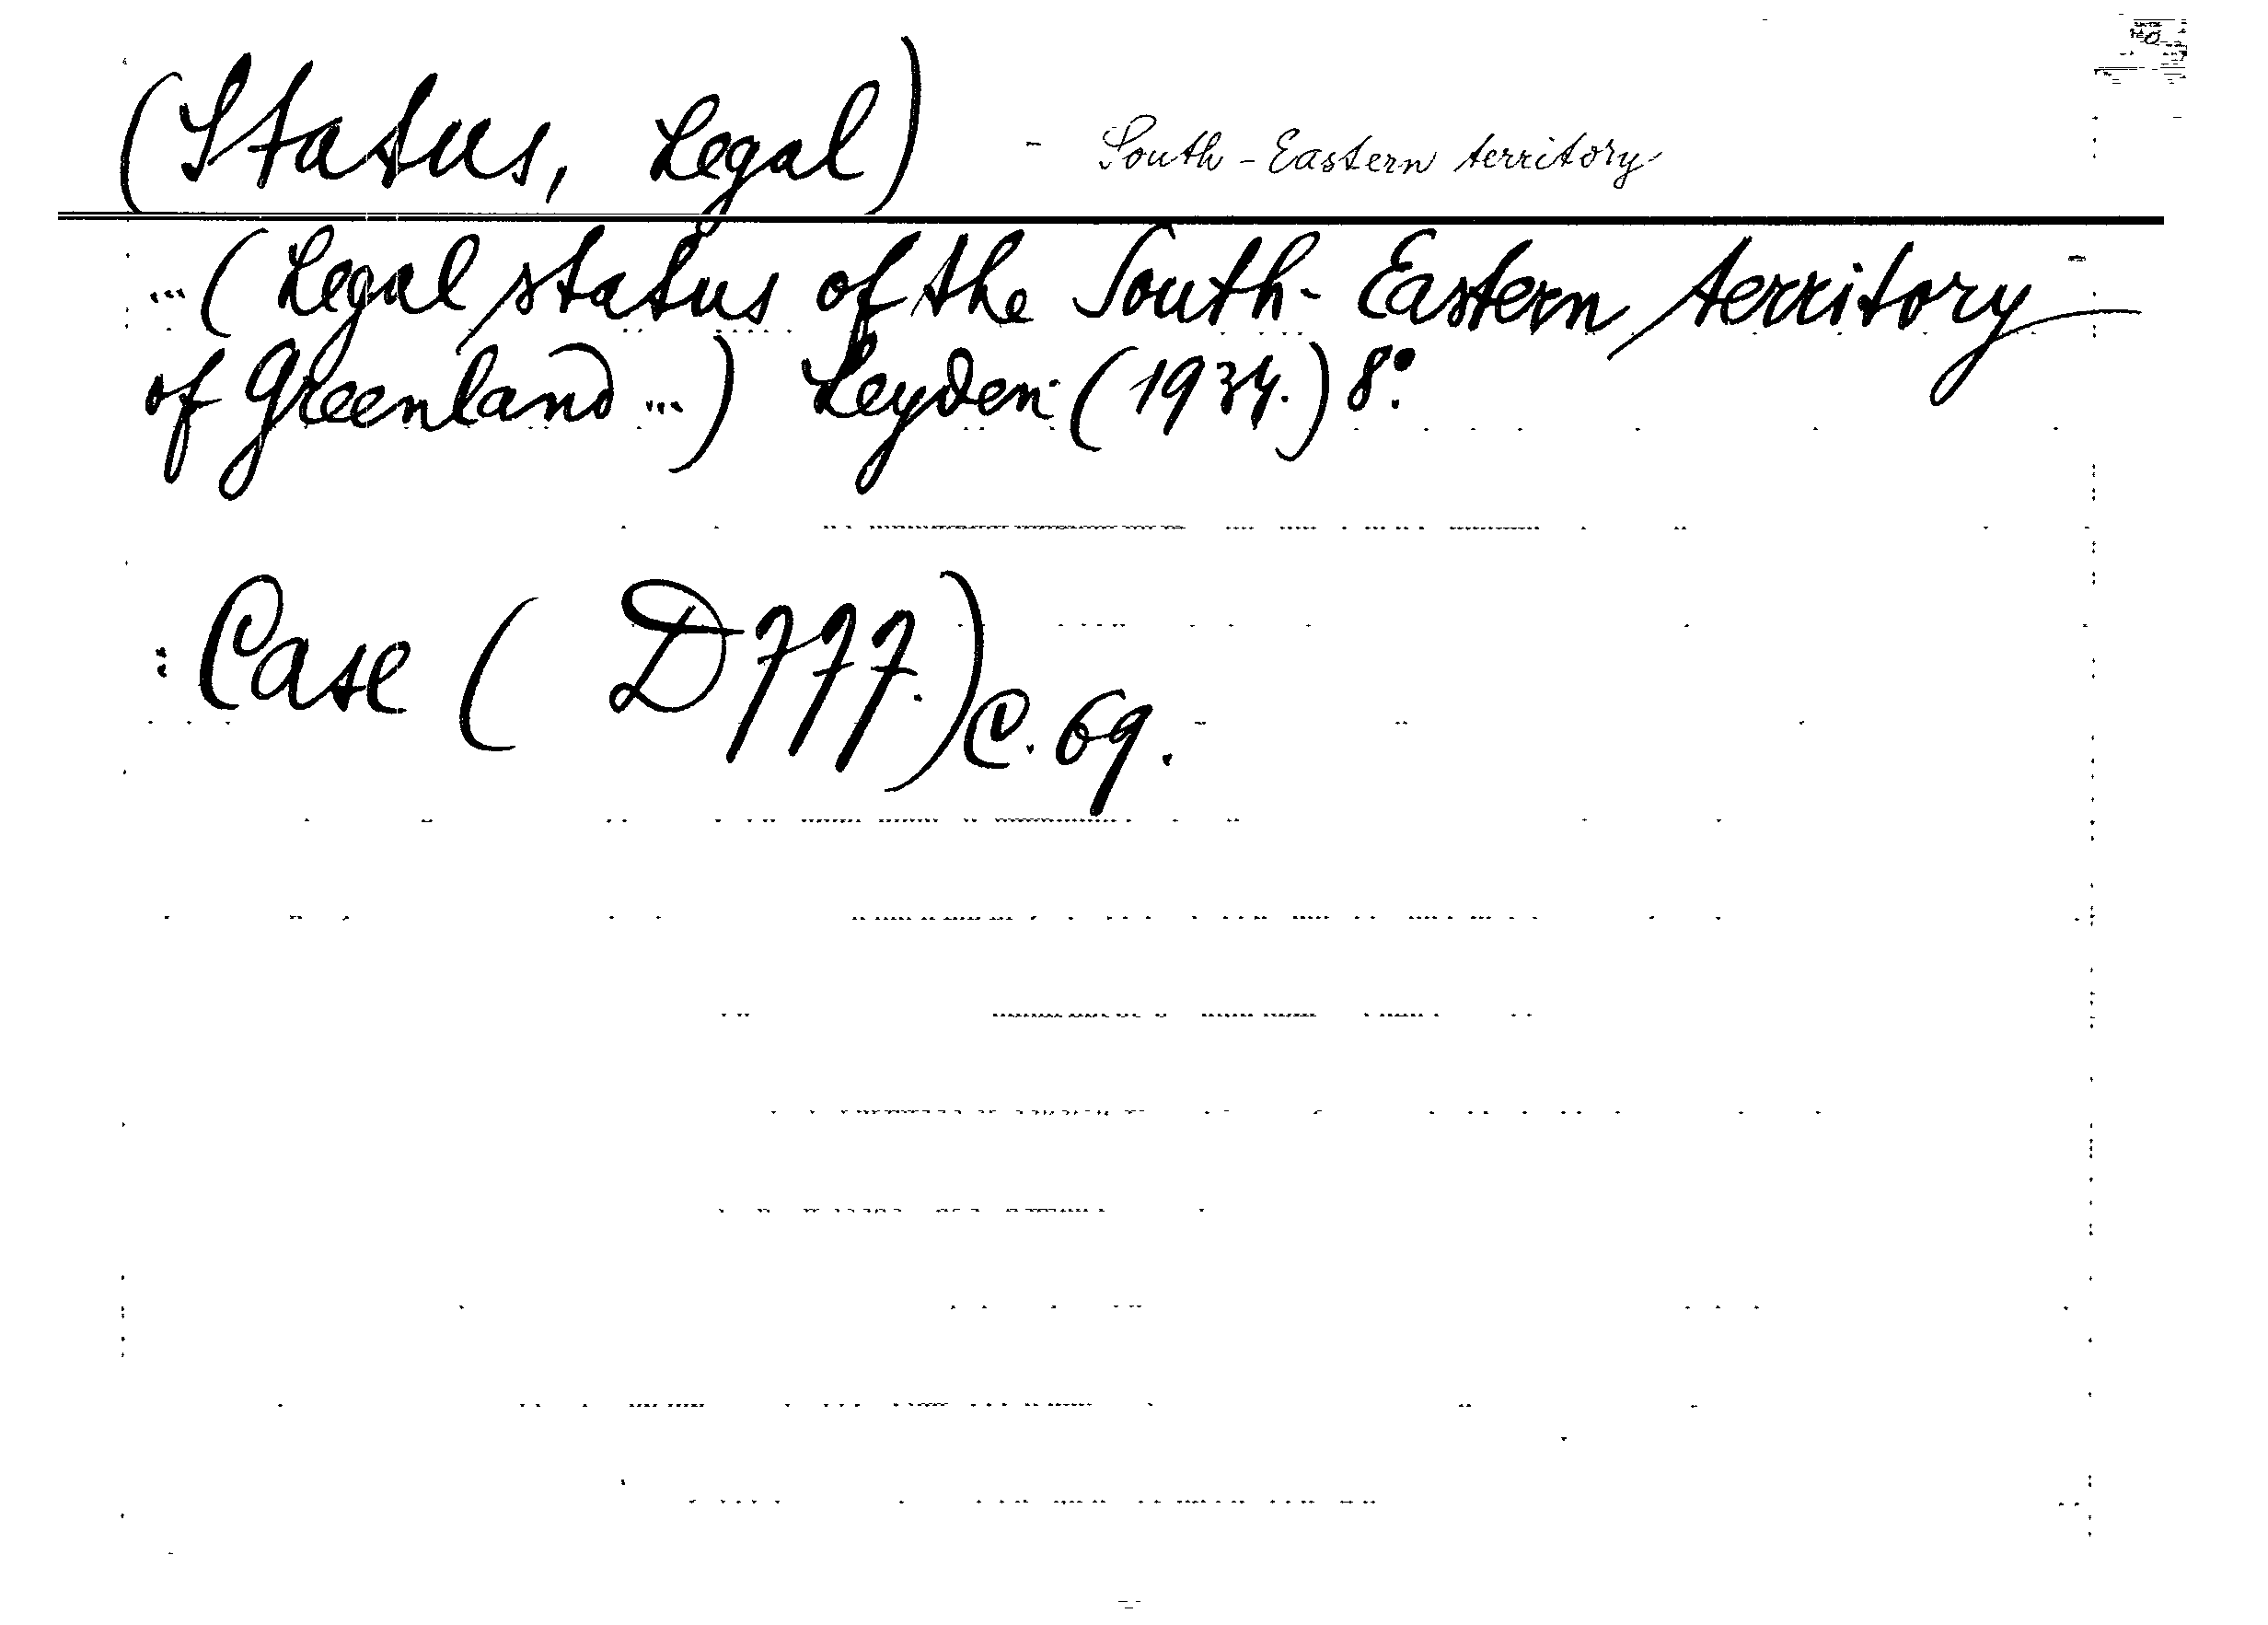 (Status, Legal) - South-Eastern territory
... (Legal status of the South-Eastern territory
of Greenland ...) Leyden (1934.) 8°.
Case (D777.) C. 69.